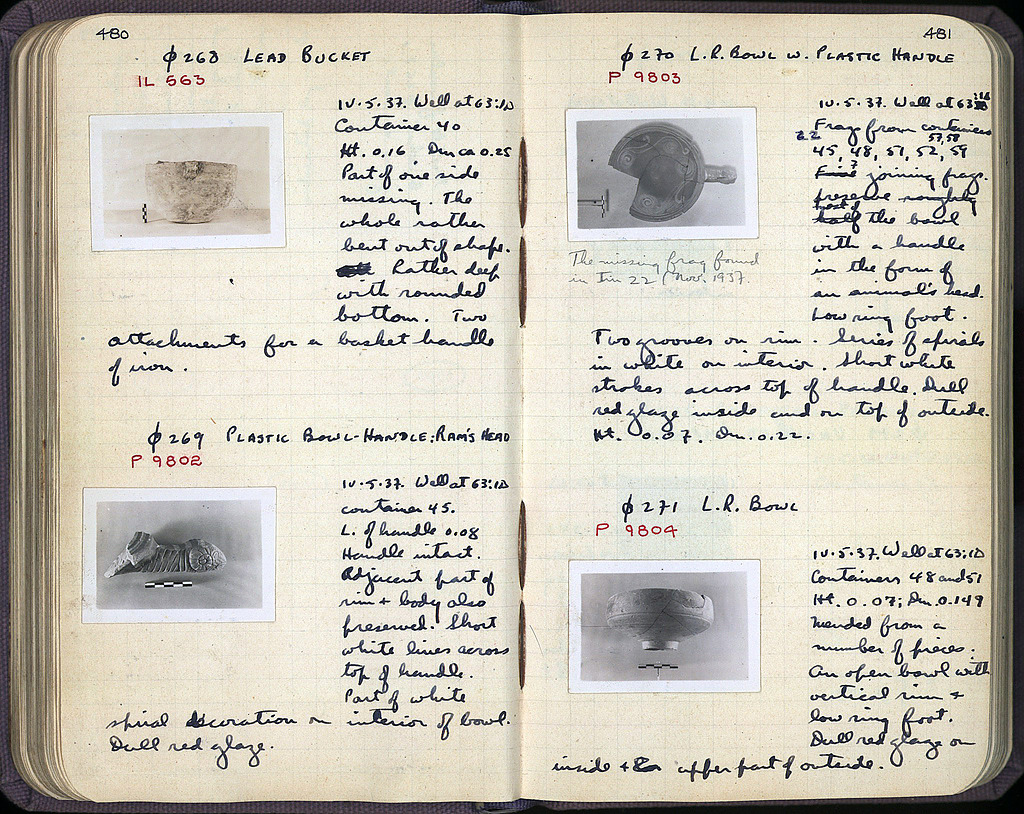 480
φ268 LEAD BUCKET
IL 563
IV.5.37. Well at 63:ID
Container 40
Ht. 0.16, Dm ca 0.25
Part of one side
missing. The
whole rather
bent out of shape.
Rather deep
with rounded
bottom. Two
attachments for a basket handle
of iron.
φ269 PLASTIC BOWL-HANDLE: RAM'S HEAD
P 9802
IV.5.37. Well at 63:ID
container 45.
L. of handle 0.08
Handle intact.
Adjacent part of
rim + body also
preserved. Short
white lines across
top of handle.
Part of white
spiral decoration on interior of bowl.
Dull red glaze.
481
φ270 L.R. BOWL W. PLASTIC HANDLE
P 9803
IV.5.37. Well at 63
Frag from containers
22 57, 58
45, 48, 51, 52, 59
7 joining frag.
preserve roughly
most of
half the bowl
with a handle
in the form of
an animal's head.
Low ring foot.
The missing frag found
in tin 22 (Nov. 1937.
Two grooves on rim. Series of spirals
in white on interior. Short white
strokes across top of handle. Dull
red glaze inside and on top of outside.
Ht. 0.07. Dm. 0.22.
φ271 L.R. BOWL
P 9804
IV.5.37. Well at 63:ID
Containers 48 and 51
Ht. 0.07; Dm. 0.149
Mended from a
number of pieces.
An open bowl with
vertical rim +
low ring foot.
Dull red glaze on
inside + upper part of outside.